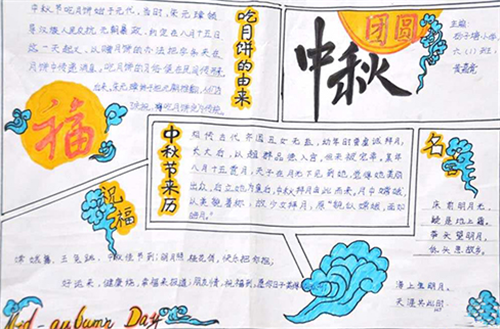 中秋节吃月饼始于元代，当时，朱元璋领
导汉族人民反抗元朝暴政，约定在八月十五日
这一天起义，以赠月饼的办法把字条夹在
月饼中传递消息，吃月饼的习俗便在民间传开
来。
吃月饼的由来
福
中秋
团圆
主编
六（1）班
中秋节来历
相传古代齐国丑女无盐，幼年时曾虔诚拜月，
长大后，以超群品德入宫，但未被宠幸，某年
八月十五赏月，天子在月光下见到她，觉得她美丽
出众，后立她为皇后，中秋拜月由此而来，月中嫦娥，
以美貌著称，故少女拜月，愿“貌似嫦娥，面如
皓月。”
名
床前明月光，
疑是地上霜。
举头望明月，
低头思故乡。
祝福
嫦娥舞，玉兔跳，中秋佳节到；明月照，桂花俏，快乐把你抱；
好运来，健康绕，幸福来报道；朋友情，祝福到，愿你日子美
海上生明月，
天涯共此时。
Mid-autumn Day